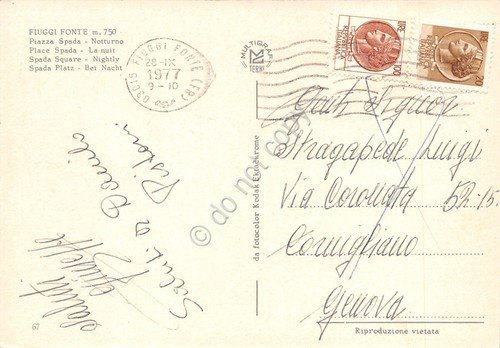 FIUGGI FONTE m. 750
Piazza Spada - Notturno
Place Spada - La nuit
Spada Square - Nightly
Spada Platz - Bei Nacht
03015 FIUGGI FONTE (FR)
28-IX
1977
9-10
MULTIGRAF
TERNI
Saluti
Giuseppe
Saluti da
da fotocolor Kodak Ektachrome
Stragapede Luigi
Via Coronata 52-15
Cornigliano
Genova
67
Riproduzione vietata
do not copy